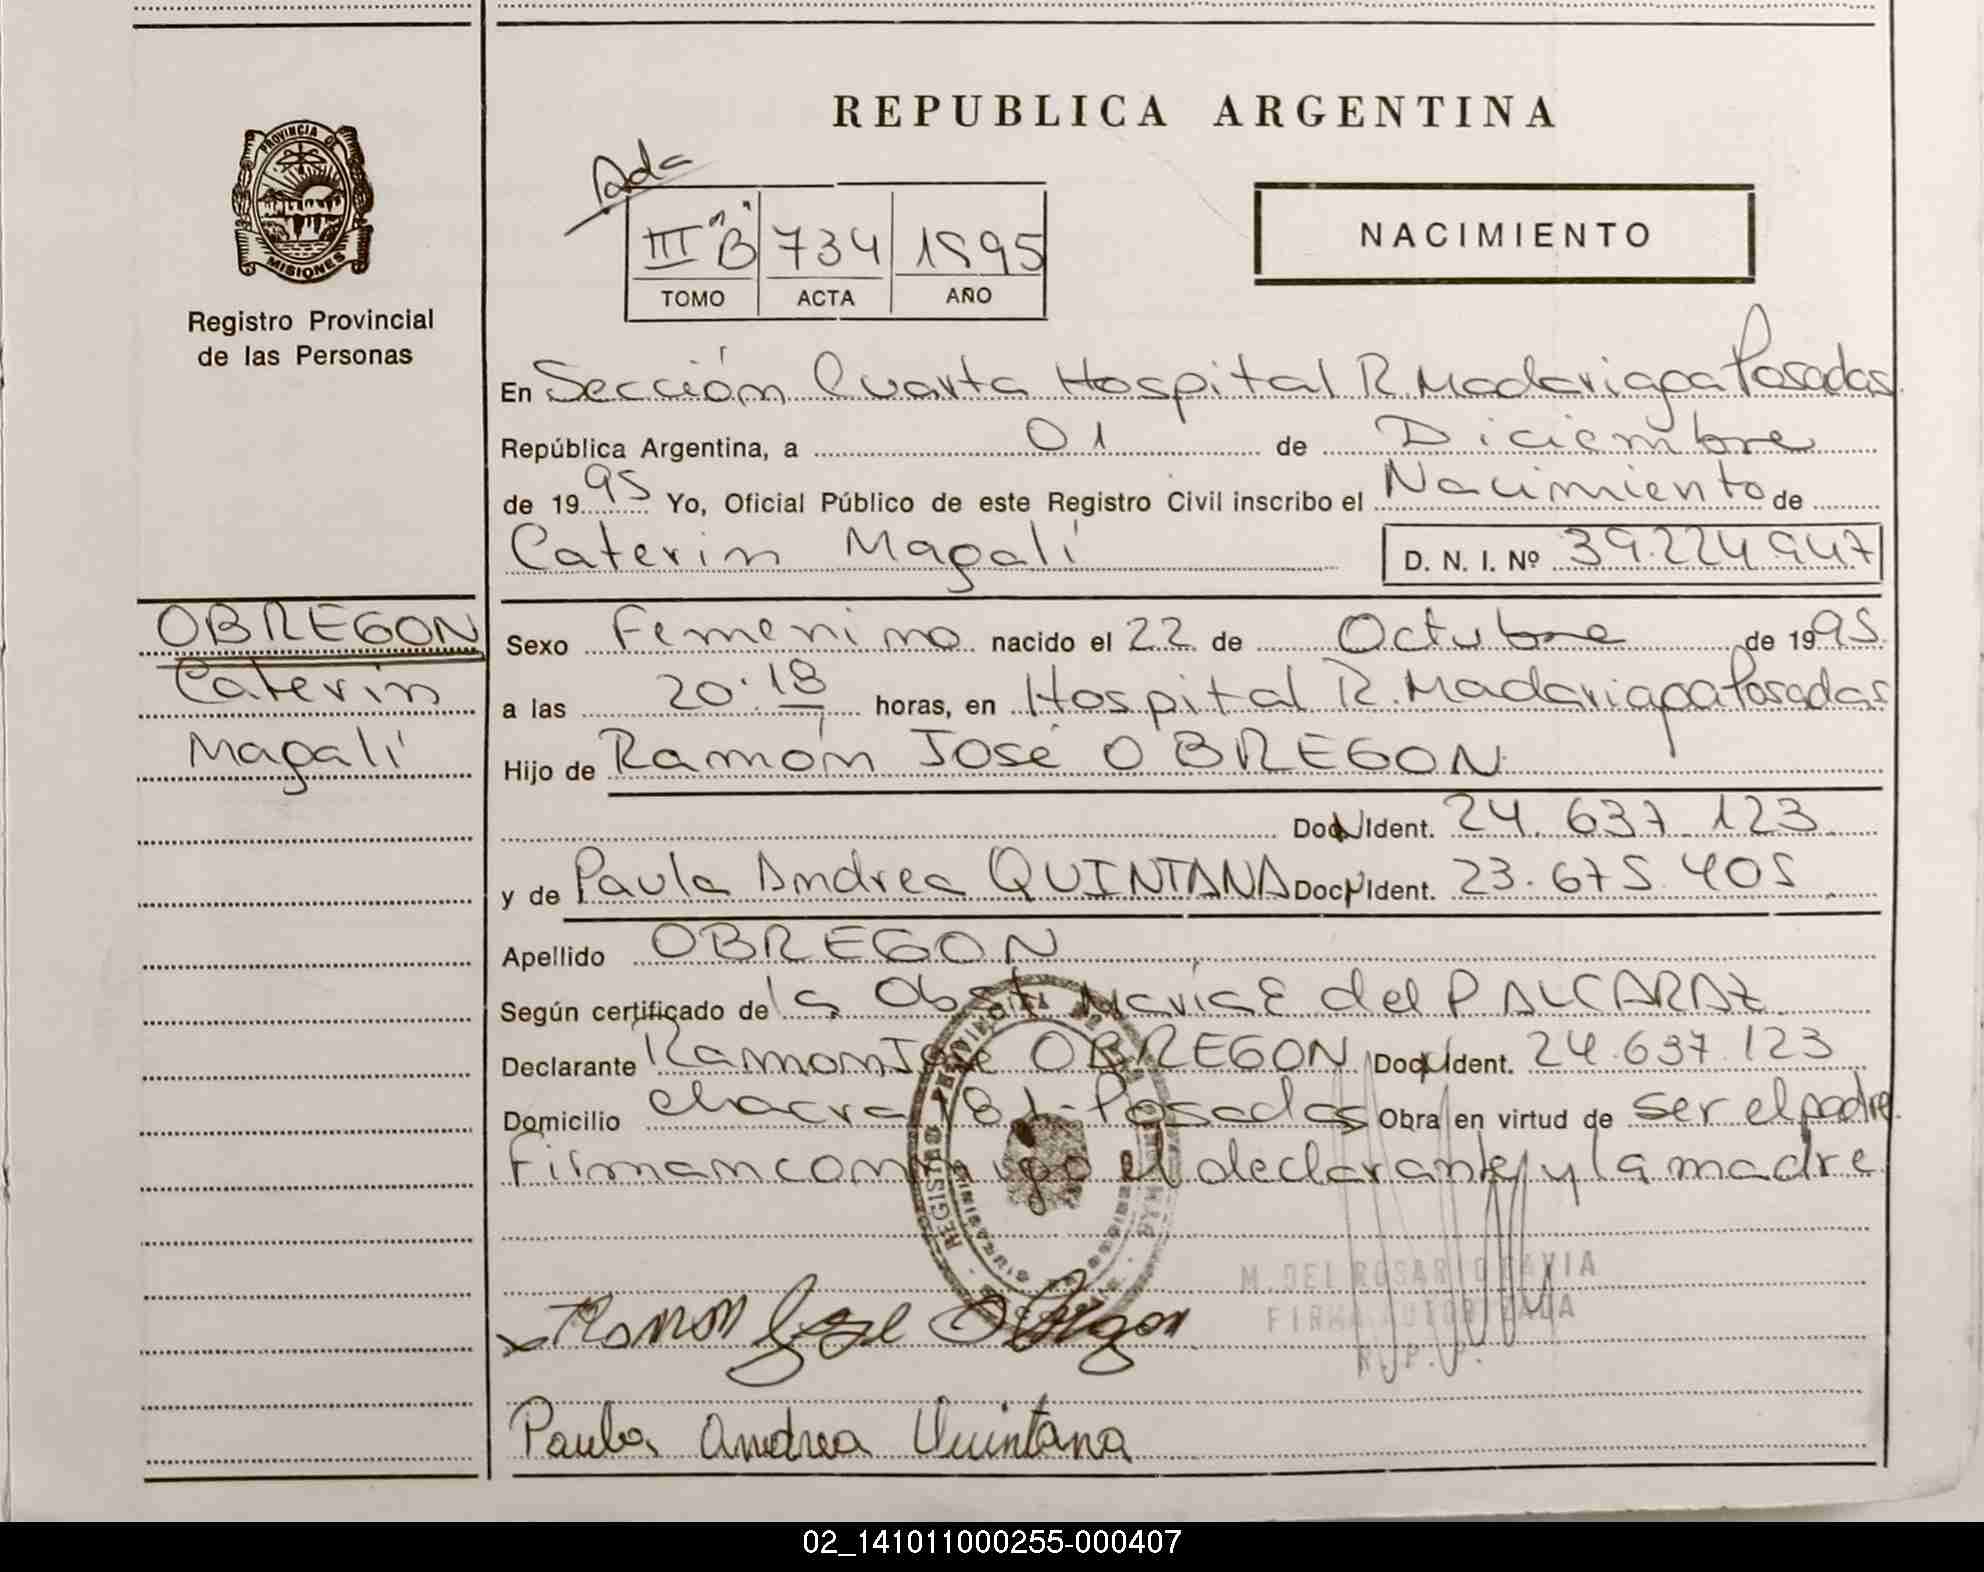 REPUBLICA ARGENTINA
PROVINCIA DE
MISIONES
Registro Provincial
de las Personas
Ada
III "B" 734 1995
TOMO ACTA AÑO
NACIMIENTO
En Sección Cuarta Hospital R. Madariaga Posadas
República Argentina, a 01 de Diciembre
de 1995 Yo, Oficial Público de este Registro Civil inscribo el Nacimiento de
Caterin Magalí D. N. I. Nº 39.224.947
OBREGON
Caterin
Magalí
Sexo Femenino nacido el 22 de Octubre de 1995.
a las 20:18 horas, en Hospital R. Madariaga Posadas
Hijo de Ramón José OBREGON
Doc. Ident. 24.637.123
y de Paula Andrea QUINTANA Doc. Ident. 23.675.405
Apellido OBREGON
Según certificado de la Obst. María E del P ALCARAZ
Declarante Ramon José OBREGON Doc. Ident. 24.637.123
Domicilio chacra 181 - Posadas Obra en virtud de ser el padre.
Firman conmigo el declarante y la madre
M. DEL ROSARIO
FIRMA AUTORIZADA
R. P. P.
Ramon Jose Obregon
Paula Andrea Quintana
02_141011000255-000407